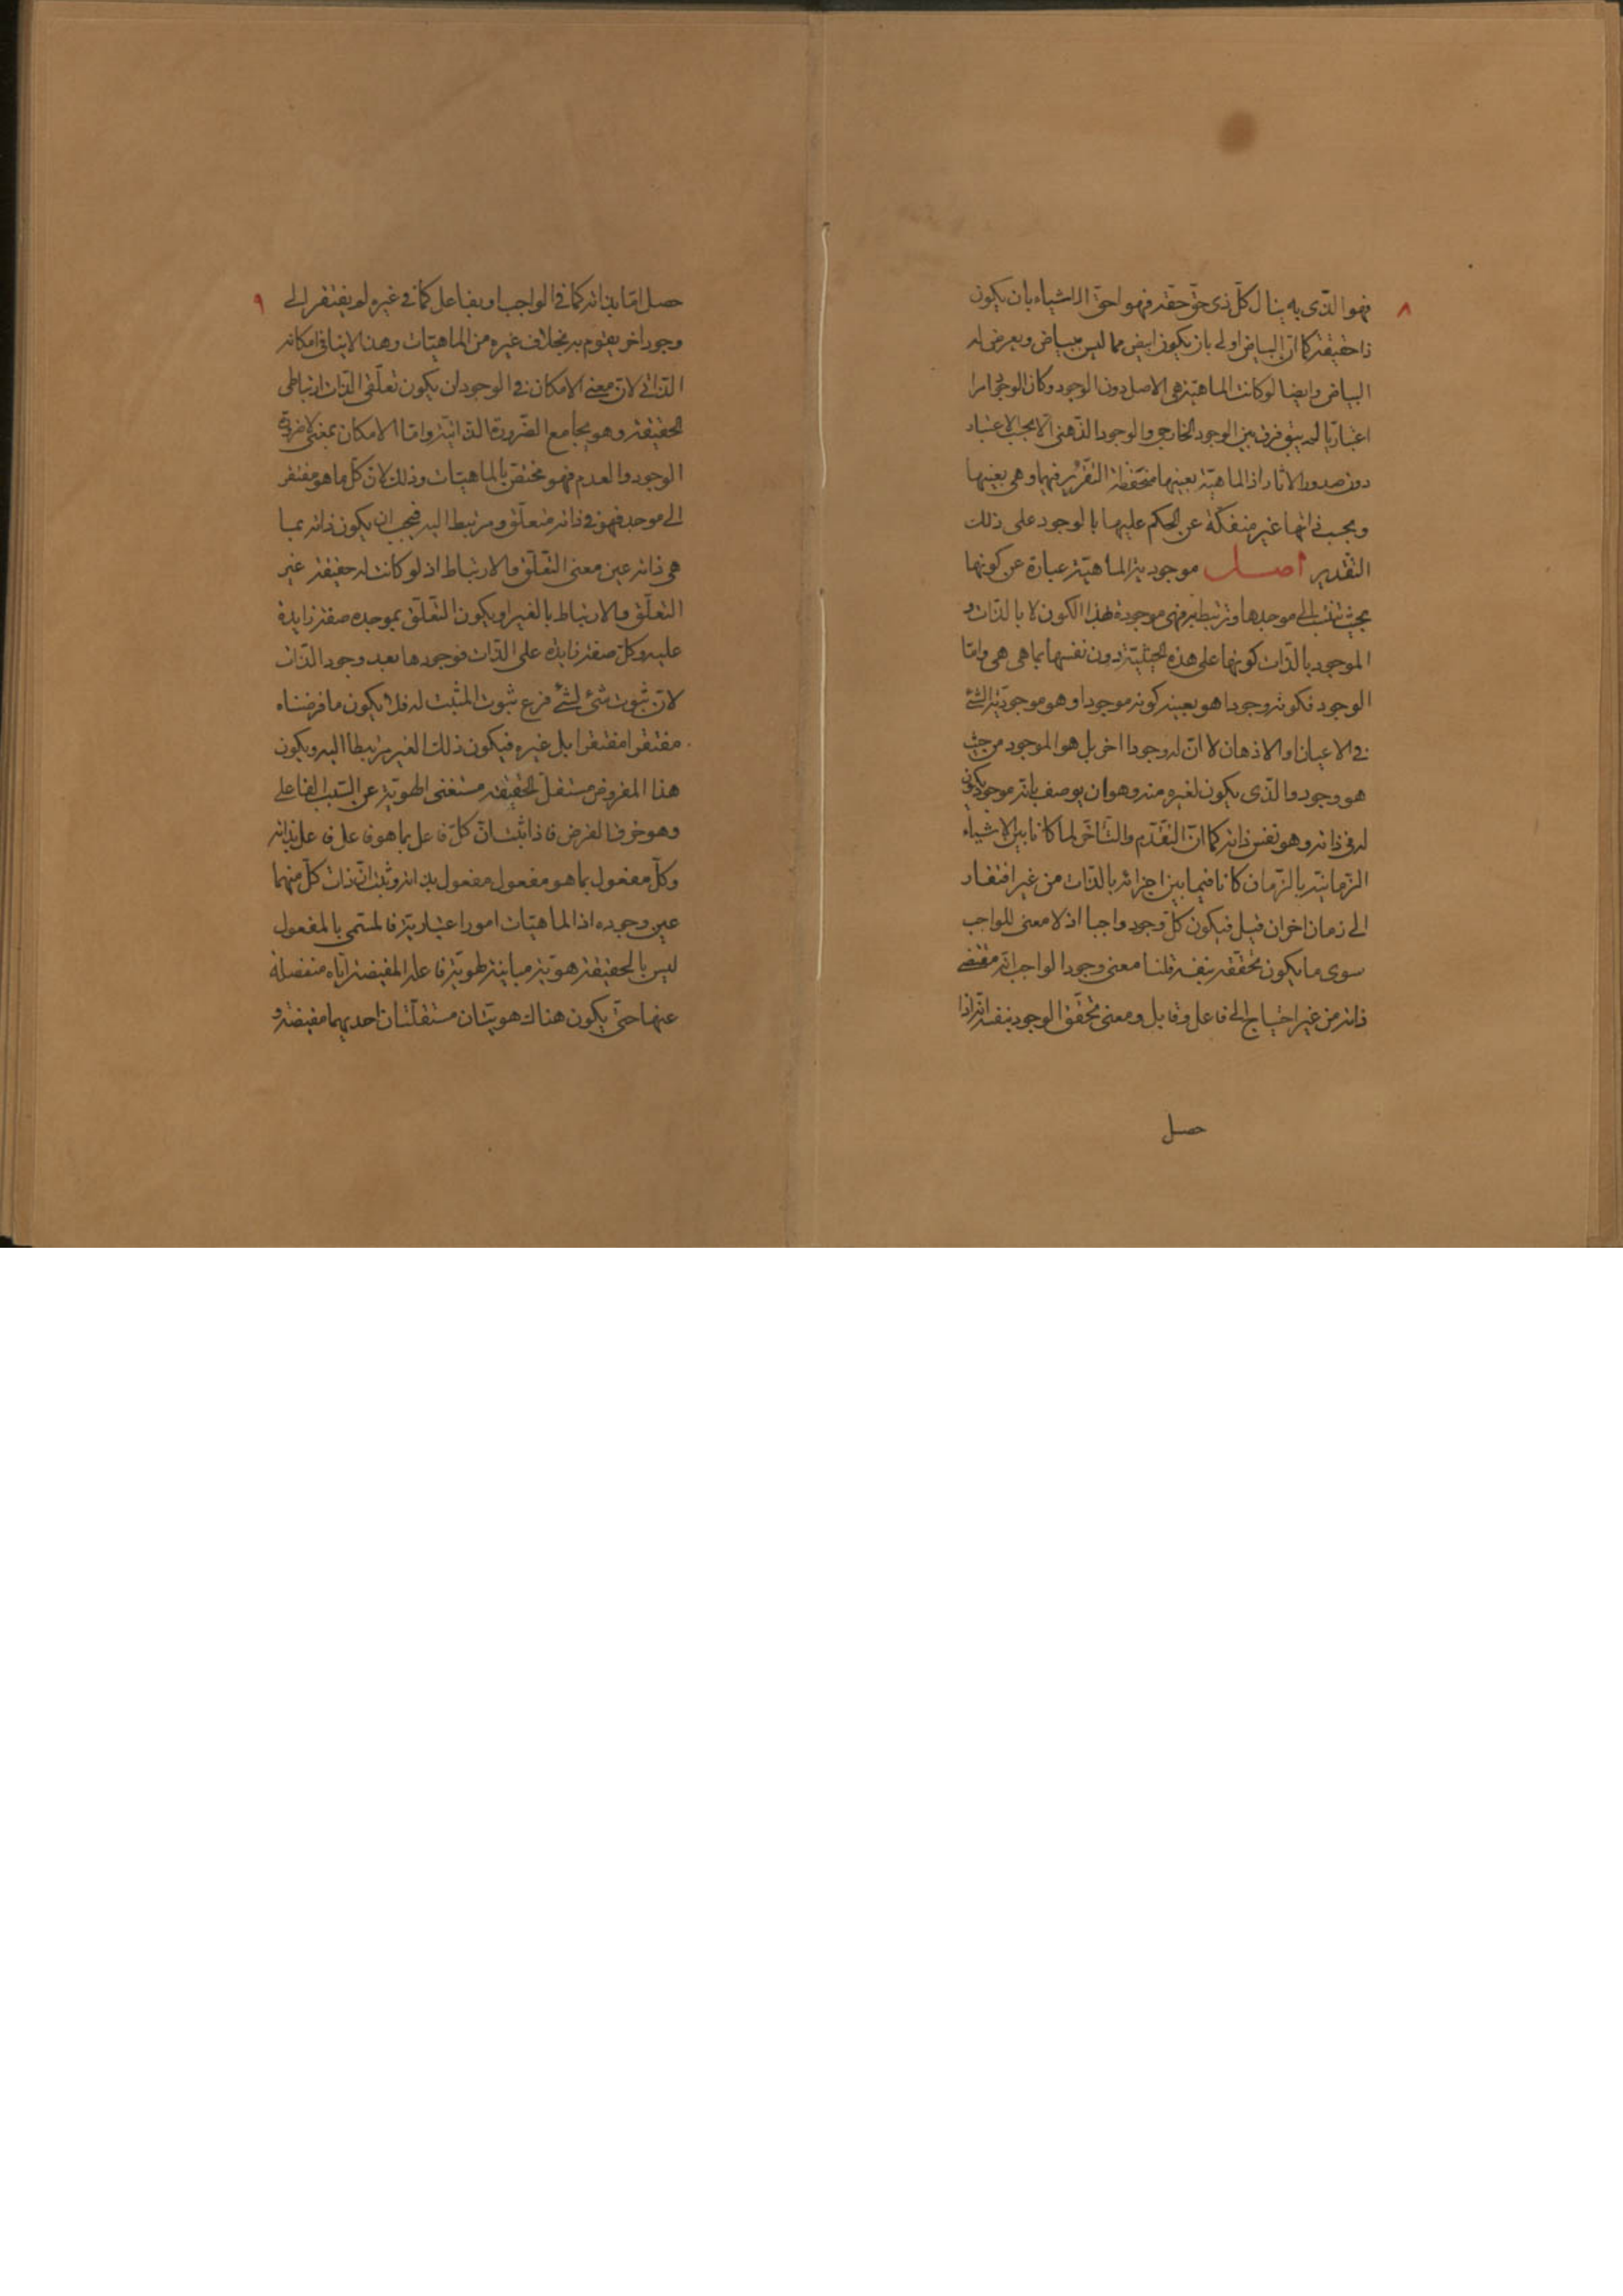 ٨
فهو الذى به ينال كلّ ذى حقّ حقه فهو احقّ الاشياء بان يكون
ذا حقيقة كما انّ البياض اولى بان يكون ابيض مما ليس ببياض ويعرض له
البياض وايضا لو كانت الماهيّة هى الاصل دون الوجود وكان الوجود امرا
اعتباريّا لم يبق فرق بين الوجود الخارجى والوجود الذهنى الا بحسب الاعتبار
دون صدور الاثار اذ الماهيّة بعينها منحفظة التقرّر فيهما وهى بعينها
ويجب ذاتها غير منفكّة عن الحكم عليها بالوجود على ذلك
التقدير اصل موجوديّة الماهيّة عبارة عن كونها
بحيث تنتسب الى موجدها وترتبط به فهى موجودة بهذا الكون لا بالذات و
الموجود بالذات كونها على هذه الحيثيّة دون نفسها بما هى هى وامّا
الوجود فكونه وجودا هو بعينه كونه موجودا وهو موجوديّة الشئ
فى الاعيان او الاذهان لا انّ له وجودا اخر بل هو الموجود من حيث
هو وجود والذى يكون لغيره منه وهو ان يوصف بانّه موجود يكون
له فى ذاته وهو نفس ذاته كما انّ التقدّم والتاخّر لما كانا بين الاشياء
الزمانيّة بالزمان كانا فيما بين اجزائه بالذات من غير افتقار
الى زمان اخر ان قيل فيكون كلّ وجود واجبا اذ لا معنى للواجب
سوى ما يكون تحقّقه بنفسه قلنا معنى وجود الواجب انّه مقتضى
ذاته من غير احتياج الى فاعل وقابل ومعنى تحقّق الوجود بنفسه انّه اذا
حصل
٩
حصل امّا بذاته كما فى الواجب او بفاعل كما فى غيره لم يفتقر الى
وجود اخر يقوم به بخلاف غيره من الماهيّات وهذا لا ينافى امكانه
الذاتى لانّ معنى الامكان فى الوجود ان يكون تعلّقى الذات ارتباطى
الحقيقة وهو يجامع الضّرورة الذاتيّة وامّا الامكان بمعنى لا ضرورة
الوجود والعدم فهو مختصّ بالماهيّات وذلك لانّ كلّ ما هو مفتقر
الى موجد فهو فى ذاته متعلّق ومرتبط اليه فيجب ان يكون ذاته بما
هى ذاته عين معنى التعلّق والارتباط اذ لو كانت له حقيقة غير
التعلّق والارتباط بالغير او يكون التعلّق بموجده صفة زايدة
عليه وكلّ صفة زايدة على الذات فوجودها بعد وجود الذات
لانّ ثبوت شئ لشئ فرع ثبوت المثبت له فلا يكون ما فرضناه
مفتقرا مفتقرا بل غيره فيكون ذلك الغير مرتبطا اليه ويكون
هذا المفروض مستقلّ الحقيقة مستغنى الهويّة عن السّبب الفاعلى
وهو خرق الفرض فاذا ثبت انّ كلّ فاعل بما هو فاعل فاعل بذاته
وكلّ مفعول بما هو مفعول مفعول بذاته وثبت انّ ذات كلّ منهما
عين وجوده اذ الماهيّات امور اعتباريّة فالمسمّى بالمفعول
ليس بالحقيقة هويّة مباينة لهويّة فاعله المفيضة ايّاه منفصلة
عنها حتى يكون هناك هويّتان مستقلّتان احديهما مفيضة و